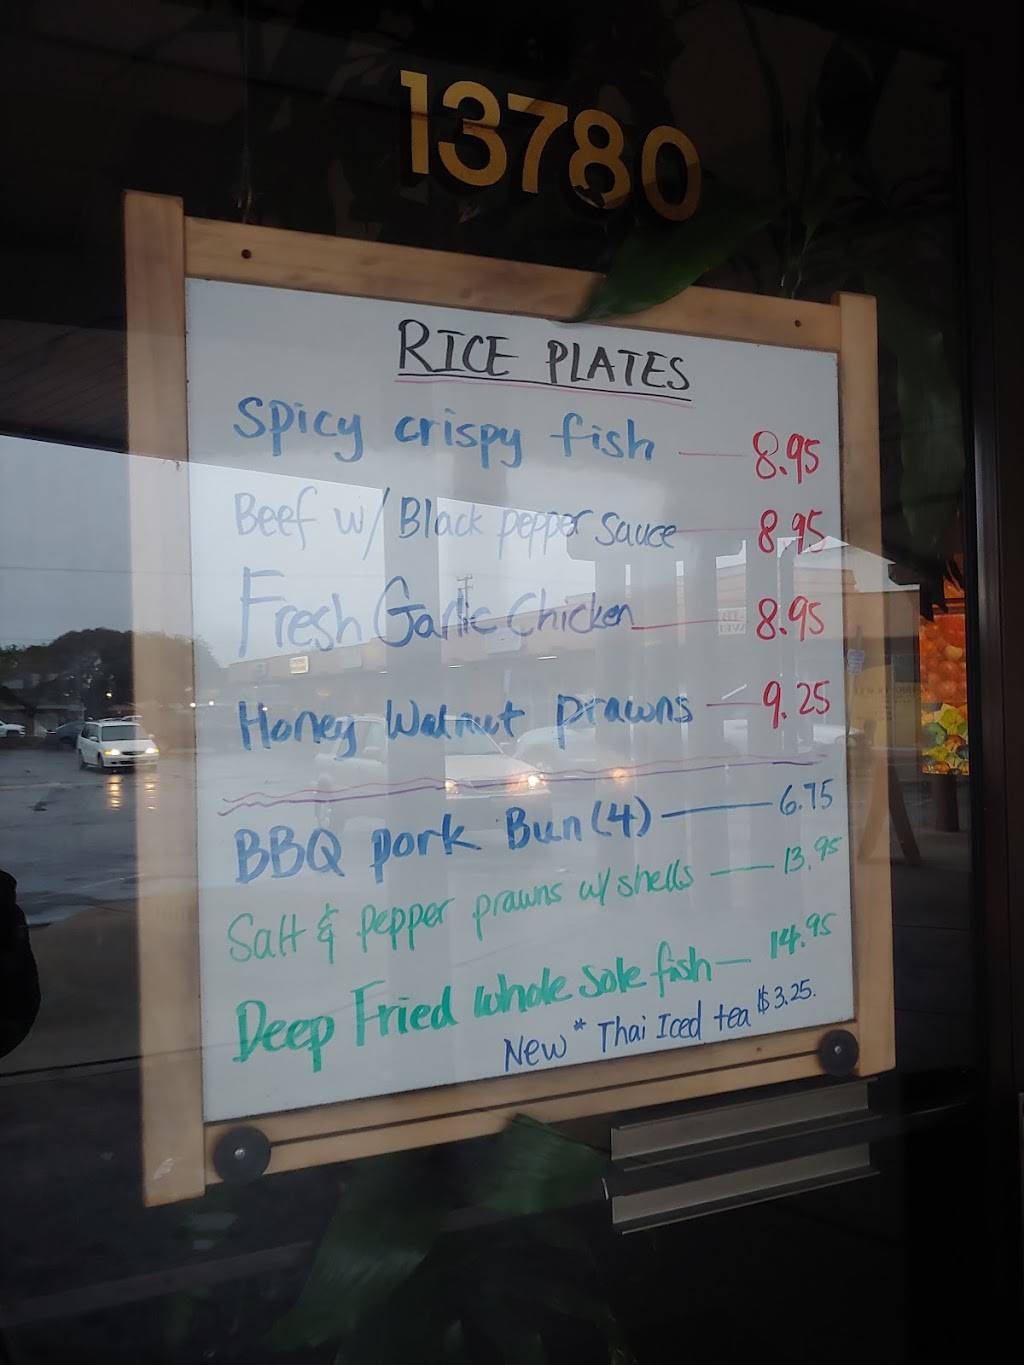 13780
RICE PLATES
Spicy crispy fish 8.95
Beef w/ Black pepper sauce 8.95
Fresh Garlic Chicken 8.95
Honey Walnut prawns 9.25
BBQ pork Bun (4) 6.75
Salt & pepper prawns w/ shells 13.95
Deep Fried whole sole fish 14.95
New * Thai Iced tea $3.25.